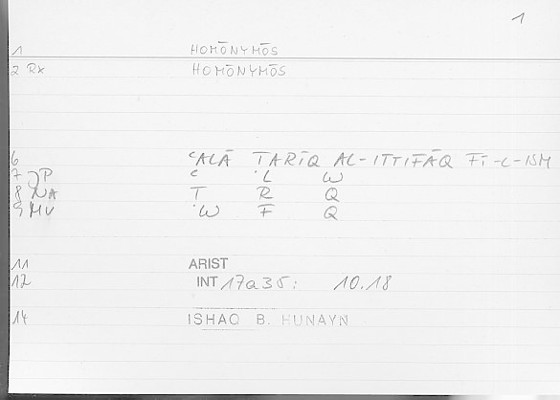 1
1 HOMŌNYMŌS
2 Rx HOMŌNYMŌS
6 ʿALĀ ṬARĪQ AL-ITTIFĀQ FĪ-L-ISM
7 JP ʿ ʾL W
8 NA Ṭ R Q
9 MV ʾW F Q
11 ARIST
12 INT 17a35: 10.18
14 ISHAQ B. HUNAYN